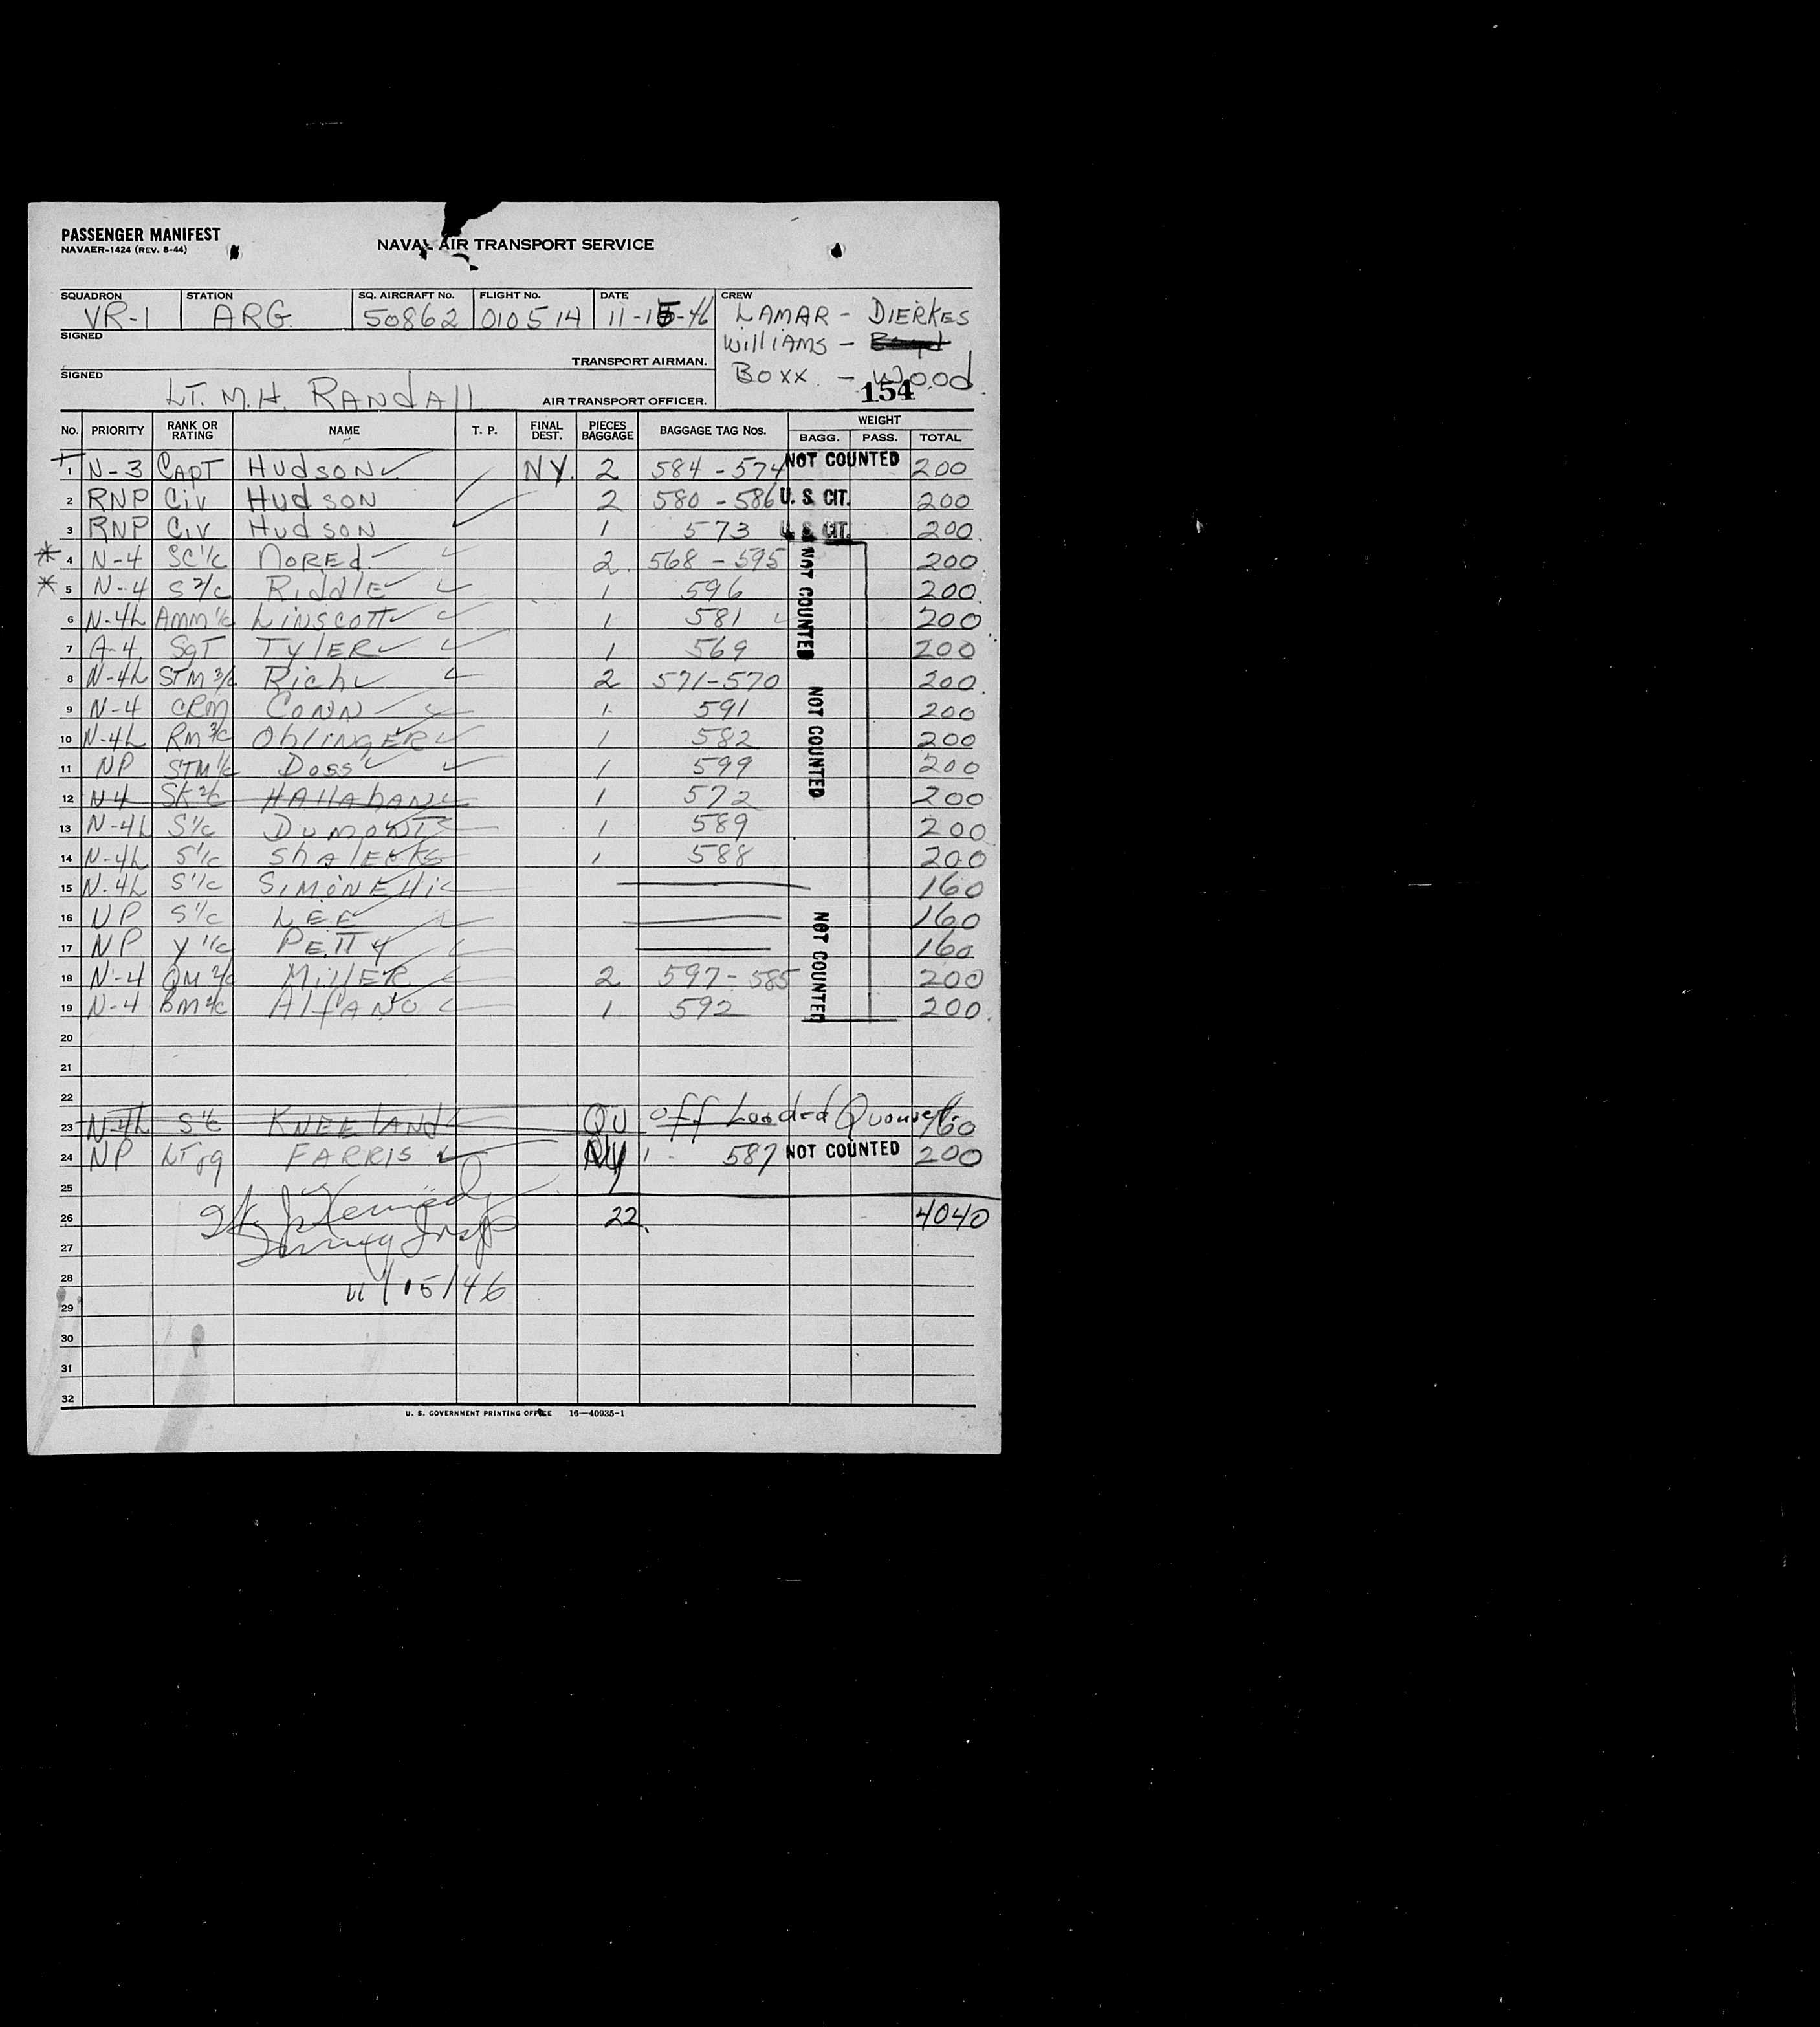 PASSENGER MANIFEST
NAVAER-1424 (REV. 8-44)
NAVAL AIR TRANSPORT SERVICE
SQUADRON STATION SQ. AIRCRAFT No. FLIGHT No. DATE CREW
VR-1 ARG. 50862 010514 11-15-46 LAMAR - DIERKES
SIGNED
Williams -
TRANSPORT AIRMAN.
SIGNED
Boxx. - Wood
154
LT. M.H. RANDAll AIR TRANSPORT OFFICER.
No. PRIORITY RANK OR RATING NAME T. P. FINAL DEST. PIECES BAGGAGE BAGGAGE TAG Nos. WEIGHT
BAGG. PASS. TOTAL
1 N-3 CAPT HudsoN NY. 2 584 - 574 NOT COUNTED 200
2 RNP Civ HudsoN 2 580 - 586 U. S. CIT. 200
3 RNP Civ HudsoN 1 573 U. S. CIT. 200
4 N-4 SC 1/c NOREd 2 568 - 595 200
5 N-4 S 2/c RiddlE 1 596 200
NOT COUNTED
6 N-4L AMM 1/c LiNSCOTT 1 581 200
7 A-4 SgT TylER 1 569 200
8 N-4L STM 3/c Rich 2 571-570 200
9 N-4 CRM CONN 1 591 200
10 N-4L RM 3/c OhliNgER 1 582 200
NOT COUNTED
11 NP STM 1/c Doss 1 599 200
12 N4 SK 2/c HAllAhAN 1 572 200
13 N-4L S 1/c DuMONT 1 589 200
14 N-4L S 1/c 1 588 200
15 N-4L S 1/c 160
16 NP S 1/c LEE 160
17 NP Y 1/c PETTY 160
NOT COUNTED
18 N-4 QM 2/c MillER 2 597 - 585 200
19 N-4 BM 2/c AlfANO 1 592 200
20
21
22
23 N-4L S 1/c KNEElANd QU off Loaded 160
24 NP LTjg FARRIS NY 1 587 NOT COUNTED 200
25
26 22 4040
27
28 11/15/46
29
30
31
32
U. S. GOVERNMENT PRINTING OFFICE 16—40935-1